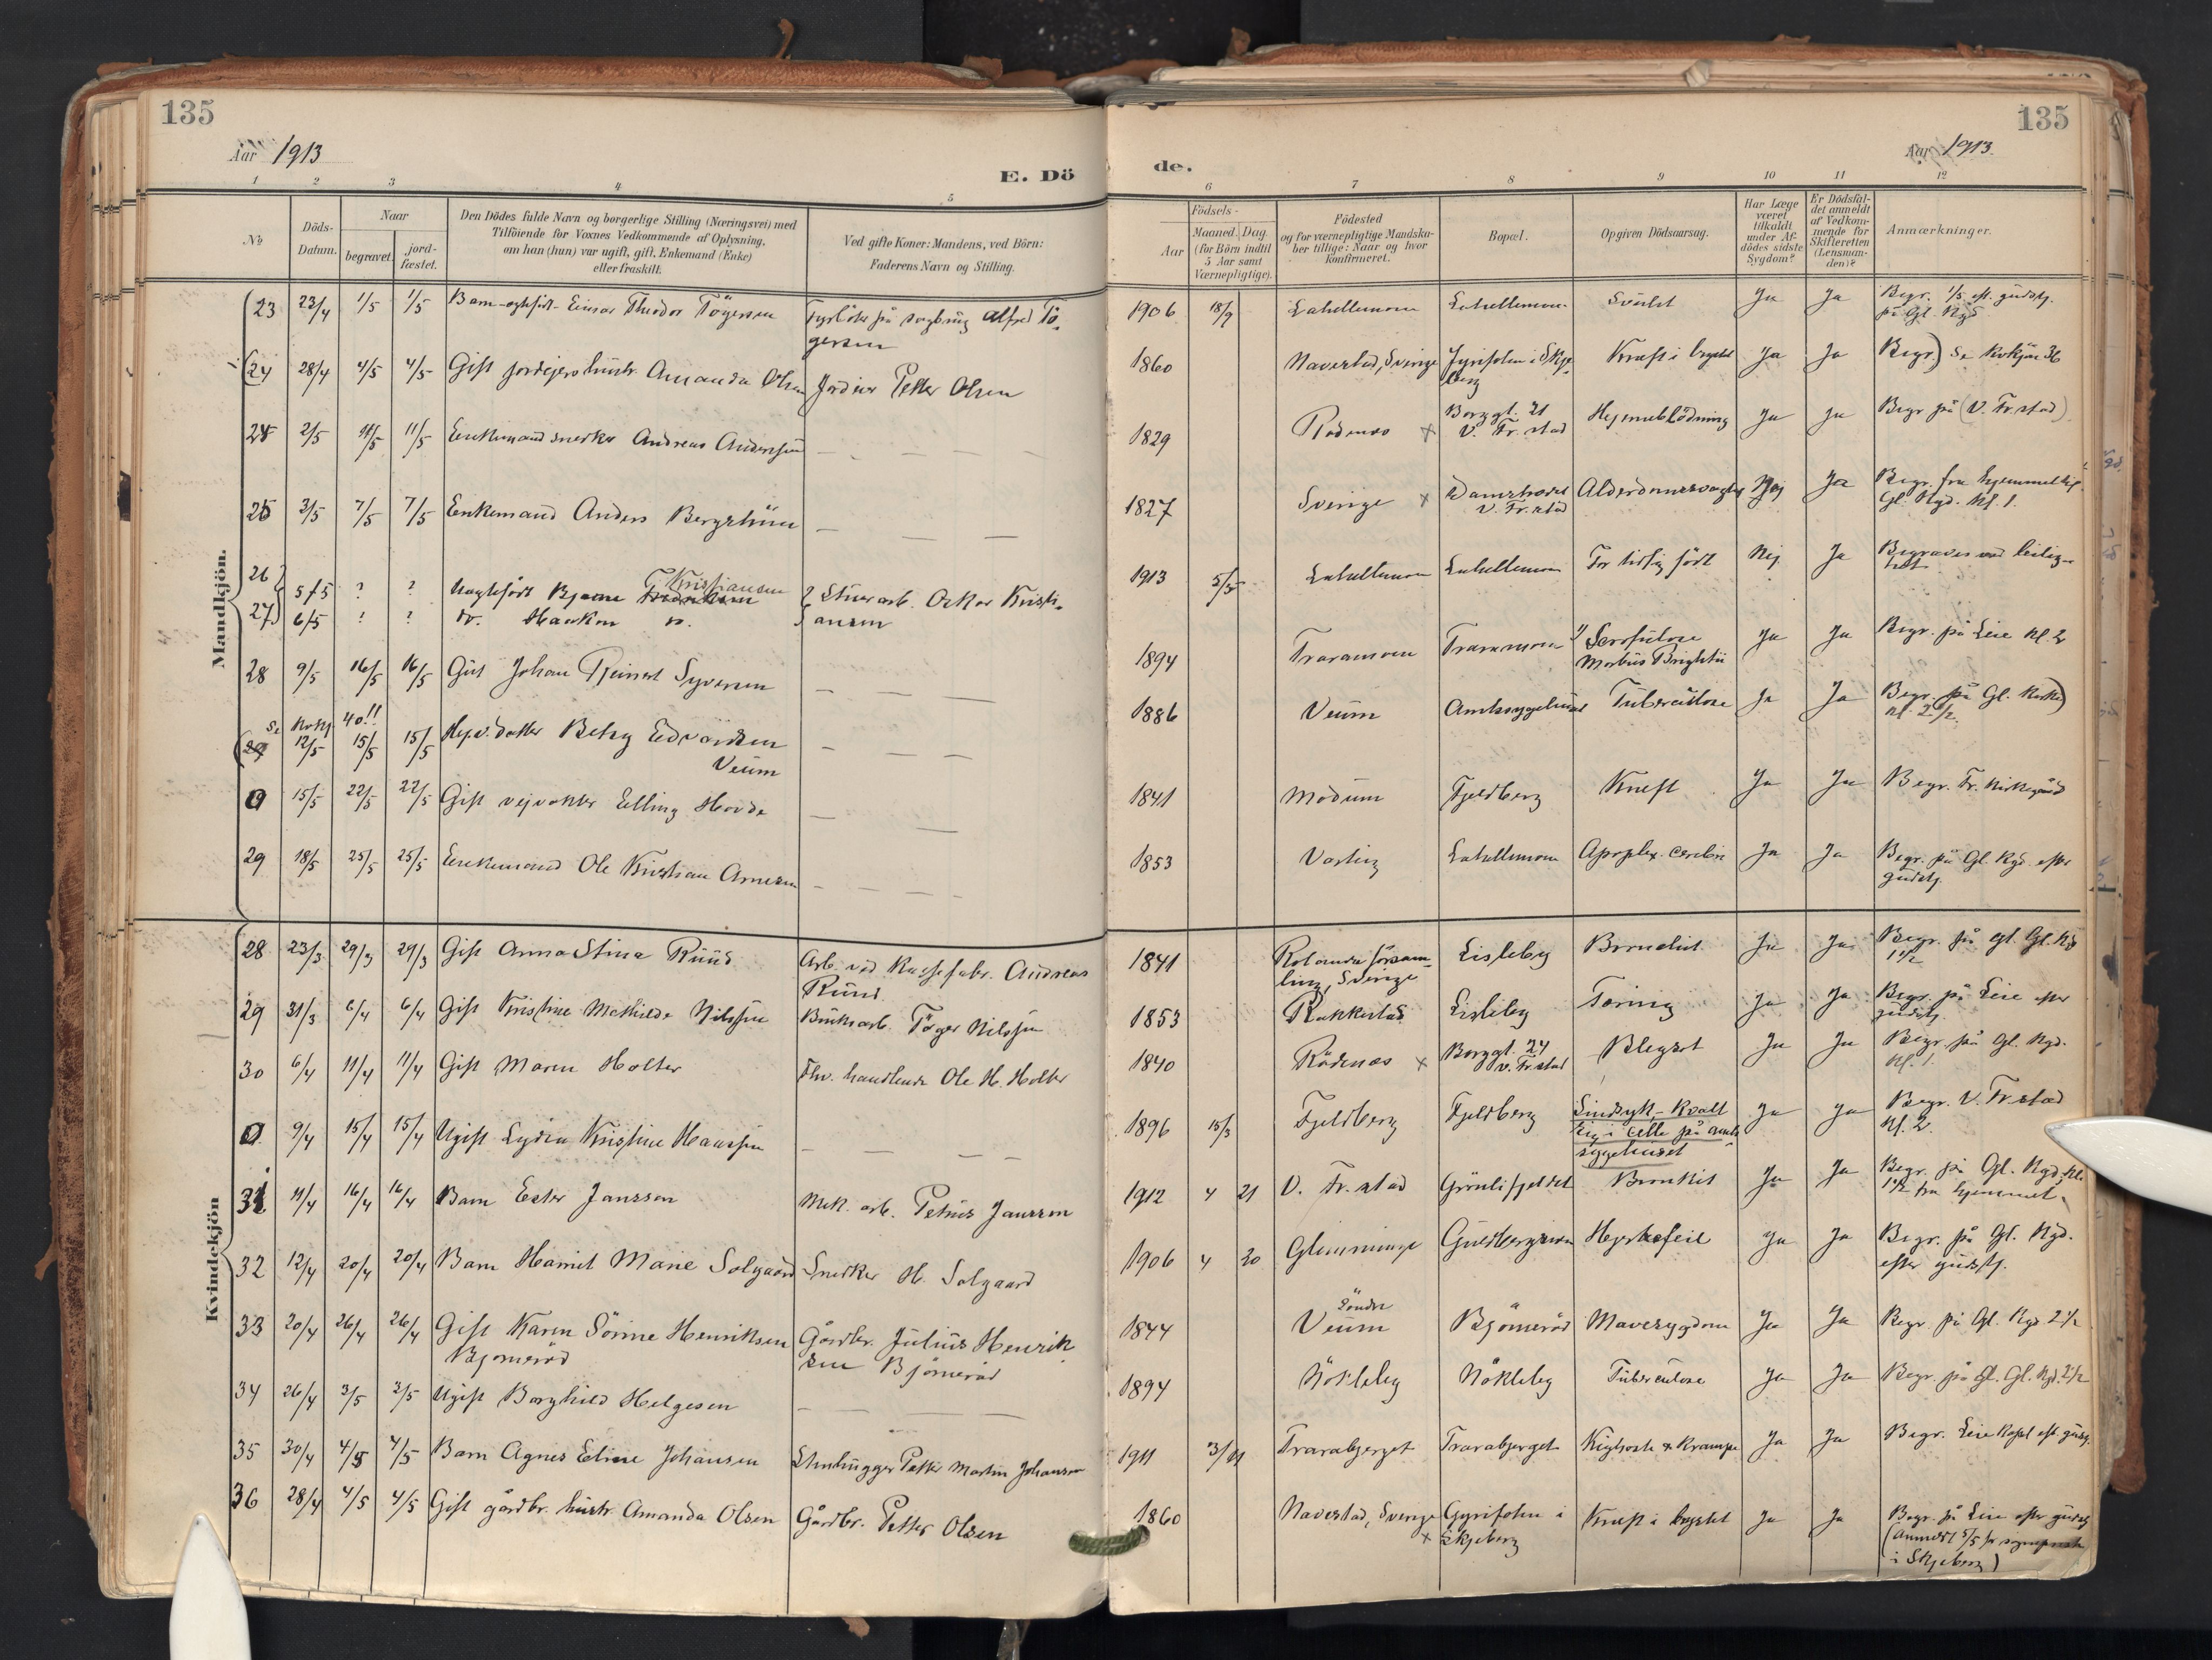 135
Aar 1913
E. Dö
1 2 3 4 5
No
Döds-Datum.
Naar
begravet.
jord-fæstet.
Den Dödes fulde Navn og borgerlige Stilling (Næringsvei) med
Tilföiende for Voxnes Vedkommende af Oplysning,
om han (hun) var ugift, gift, Enkemand (Enke)
eller fraskilt.
Ved gifte Koner: Mandens, ved Börn:
Faderens Navn og Stilling.
Mandkjön.
23 23/4 1/5 1/5 Barn - ægtefødt - Einar Theodor Tögersen Fyrböter på sagbrug Alfred Tö-
gersen
24 28/4 4/5 4/5 Gift jordejers hustr. Amanda Olsen Jordeier Petter Olsen
24 2/5 11/5 11/5 Enkemand snerker Andreas Anderssen
25 3/5 7/5 7/5 Enkemand Anders Bergström
26 5/5 ? ? Uægtefödt Bjarne Kristiansen Stuerarb. Oskar Kristi-
27 6/5 ? ? do. Haakon do. ansen
28 9/5 16/5 16/5 Gut Johan Reinert Syversen
Se Kvkj 40!!
29 12/5 15/5 15/5 datter Betsy Edvardsen
Veum
0 15/5 22/5 22/5 Gift vejvokter Elling Hovde
29 18/5 25/5 25/5 Enkemand Ole Kristian Arnesen
Kvindekjön
28 23/3 29/3 29/3 Gift Anna Stina Ruud Arb. ved Kassefabr. Andreas
Ruud.
29 31/3 6/4 6/4 Gift Kristine Mathilde Nilssen Bruksarb. Töger Nilssen
30 6/4 11/4 11/4 Gift Maren Holter Fhv. handlende Ole H. Holter
0 9/4 15/4 15/4 Ugift Lydia Kristine Hanssen
31 11/4 16/4 16/4 Barn Ester Janssen Mek. arb. Petrus Janssen
32 12/4 20/4 20/4 Barn Harriet Marie Solgaard Snerker H. Solgaard
33 20/4 26/4 26/4 Gift Karen Sörine Henriksen Gårdbr. Julius Henrik
Bjørneröd sen Björneröd
34 26/4 3/5 3/5 Ugift Borghild Helgesen
35 30/4 4/5 4/5 Barn Agnes Eline Johansen Stenhugger Petter Martin Johansen
36 28/4 4/5 4/5 Gift gårdbr. hustr. Amanda Olsen Gårdbr. Petter Olsen
135
Aar 1913.
de.
6 7 8 9 10 11 12
Födsels-
Aar
Maaned. Dag.
(for Börn indtil
5 Aar samt
Værnepligtige).
Födested
og for værnepligtige Mandska-
ber tillige: Naar og hvor
konfirmeret.
Bopæl.
Opgiven Dödsaarsag.
Har Læge
været
tilkaldt
under Af-
dödes sidste
Sygdom?
Er Dödsfal-
det anmeldt
af Vedkom-
mende for
Skifteretten
(Lensman-
den)?
Anmærkninger.
1906 18/9 Lahellemoen Lahellemoen Svulst Ja Ja Begr. 1/5 eft. gudstj.
på Gl. Kgd
1860 Naverstad, Sverige i Skje- Kræft i brystet Ja Ja Begr.) Se Kvkjön 36
berg
1829 Rödenes x Borggt. 21 Hjerneblödning Ja Ja Begr på (V. Fr.stad)
V. Fr.stad
1827 Sverige x Alderdomssvaghed Nej Ja Begr. fra hjemmet
V. Fr.stad Gl. Kgd. Kl. 1.
1913 5/5 Lahellemoen Lahellemoen For tidlig födt Nej Ja Begraves ved leilig-
het
1894 Traramoen Traramoen Scrofulose Ja Ja Begr. på Leie Kl. 2
Morbus Brightii
1886 Veum Amtssygehuset Tuberculose Ja Ja Begr. på Gl. Kirke)
Kl. 2 1/2.
1841 Modum Fjeldberg Kræft Ja Ja Begr. Fr. Kirkegård
1853 Varteig Lahellemoen Apoplex. cerebri Ja Ja Begr. på Gl. Kgd. efter
gudstj.
1841 försam- Lisleby Bronchit Ja Ja Begr. på gl. Gl. Kgd
ling, Sverige 1 1/2
1853 Rakkestad Lisleby Tæring Ja Ja Begr. på Leie efter
gudstj.
1840 Rödenæs x Borggt. 24 Blegsot Ja Ja Begr. på Gl. Kgd.
V. Fr.stad Kl. 1.
1896 15/3 Fjeldberg Fjeldberg Sindsyk - Kvalt Ja Ja Begr. V. Fr.stad
sig i celle på amts- Kl. 2.
sygehuset
1912 4 21 V. Fr.stad Grönlifjeldet Bronkit Ja Ja Begr. på Gl. Kgd. Kl.
1 1/2 fra hjemmet.
1906 4 20 Glemminge Guldbergmoen Hjertefeil Ja Ja Begr. på Gl. Kgd.
efter gudstj.
1844 Söndre
Veum Björneröd Mavesygdom Ja Ja Begr. på Gl. Kgd. 2 1/2
1894 Nökleby Nökleby Tuberculose Ja Ja Begr. på gl. Gl. Kgd. 2 1/2
1911 3/11 Trarabjerget Trarabjerget Kighoste & Krampe Ja Ja Begr. Leie Kapel eft. gudstj.
1860 Naverstad, Sverige x i Kræft i brystet Ja Ja Begr. på Leie efter gudstj
Skjeberg (anmeldt 5/5 for
i Skjeberg)